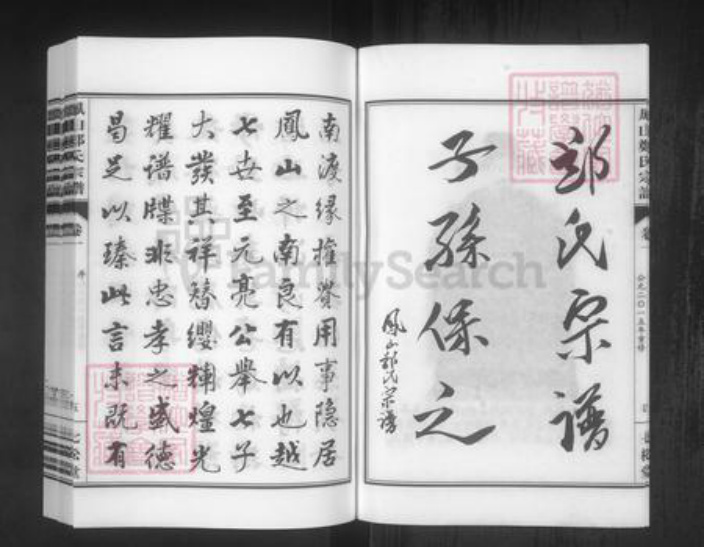 郑氏宗谱
子孫保之
鳳山郑氏宗谱
南渡缘權贇用事隐居
鳳山之南良有以也越
七世至元亮公舉七子
大發其祥簪缨辅煌光
耀谱牒非忠孝之盛德
曷足以臻此言未既有
鳳山鄭氏宗譜
卷一
公元二〇一五年重修
FamilySearch